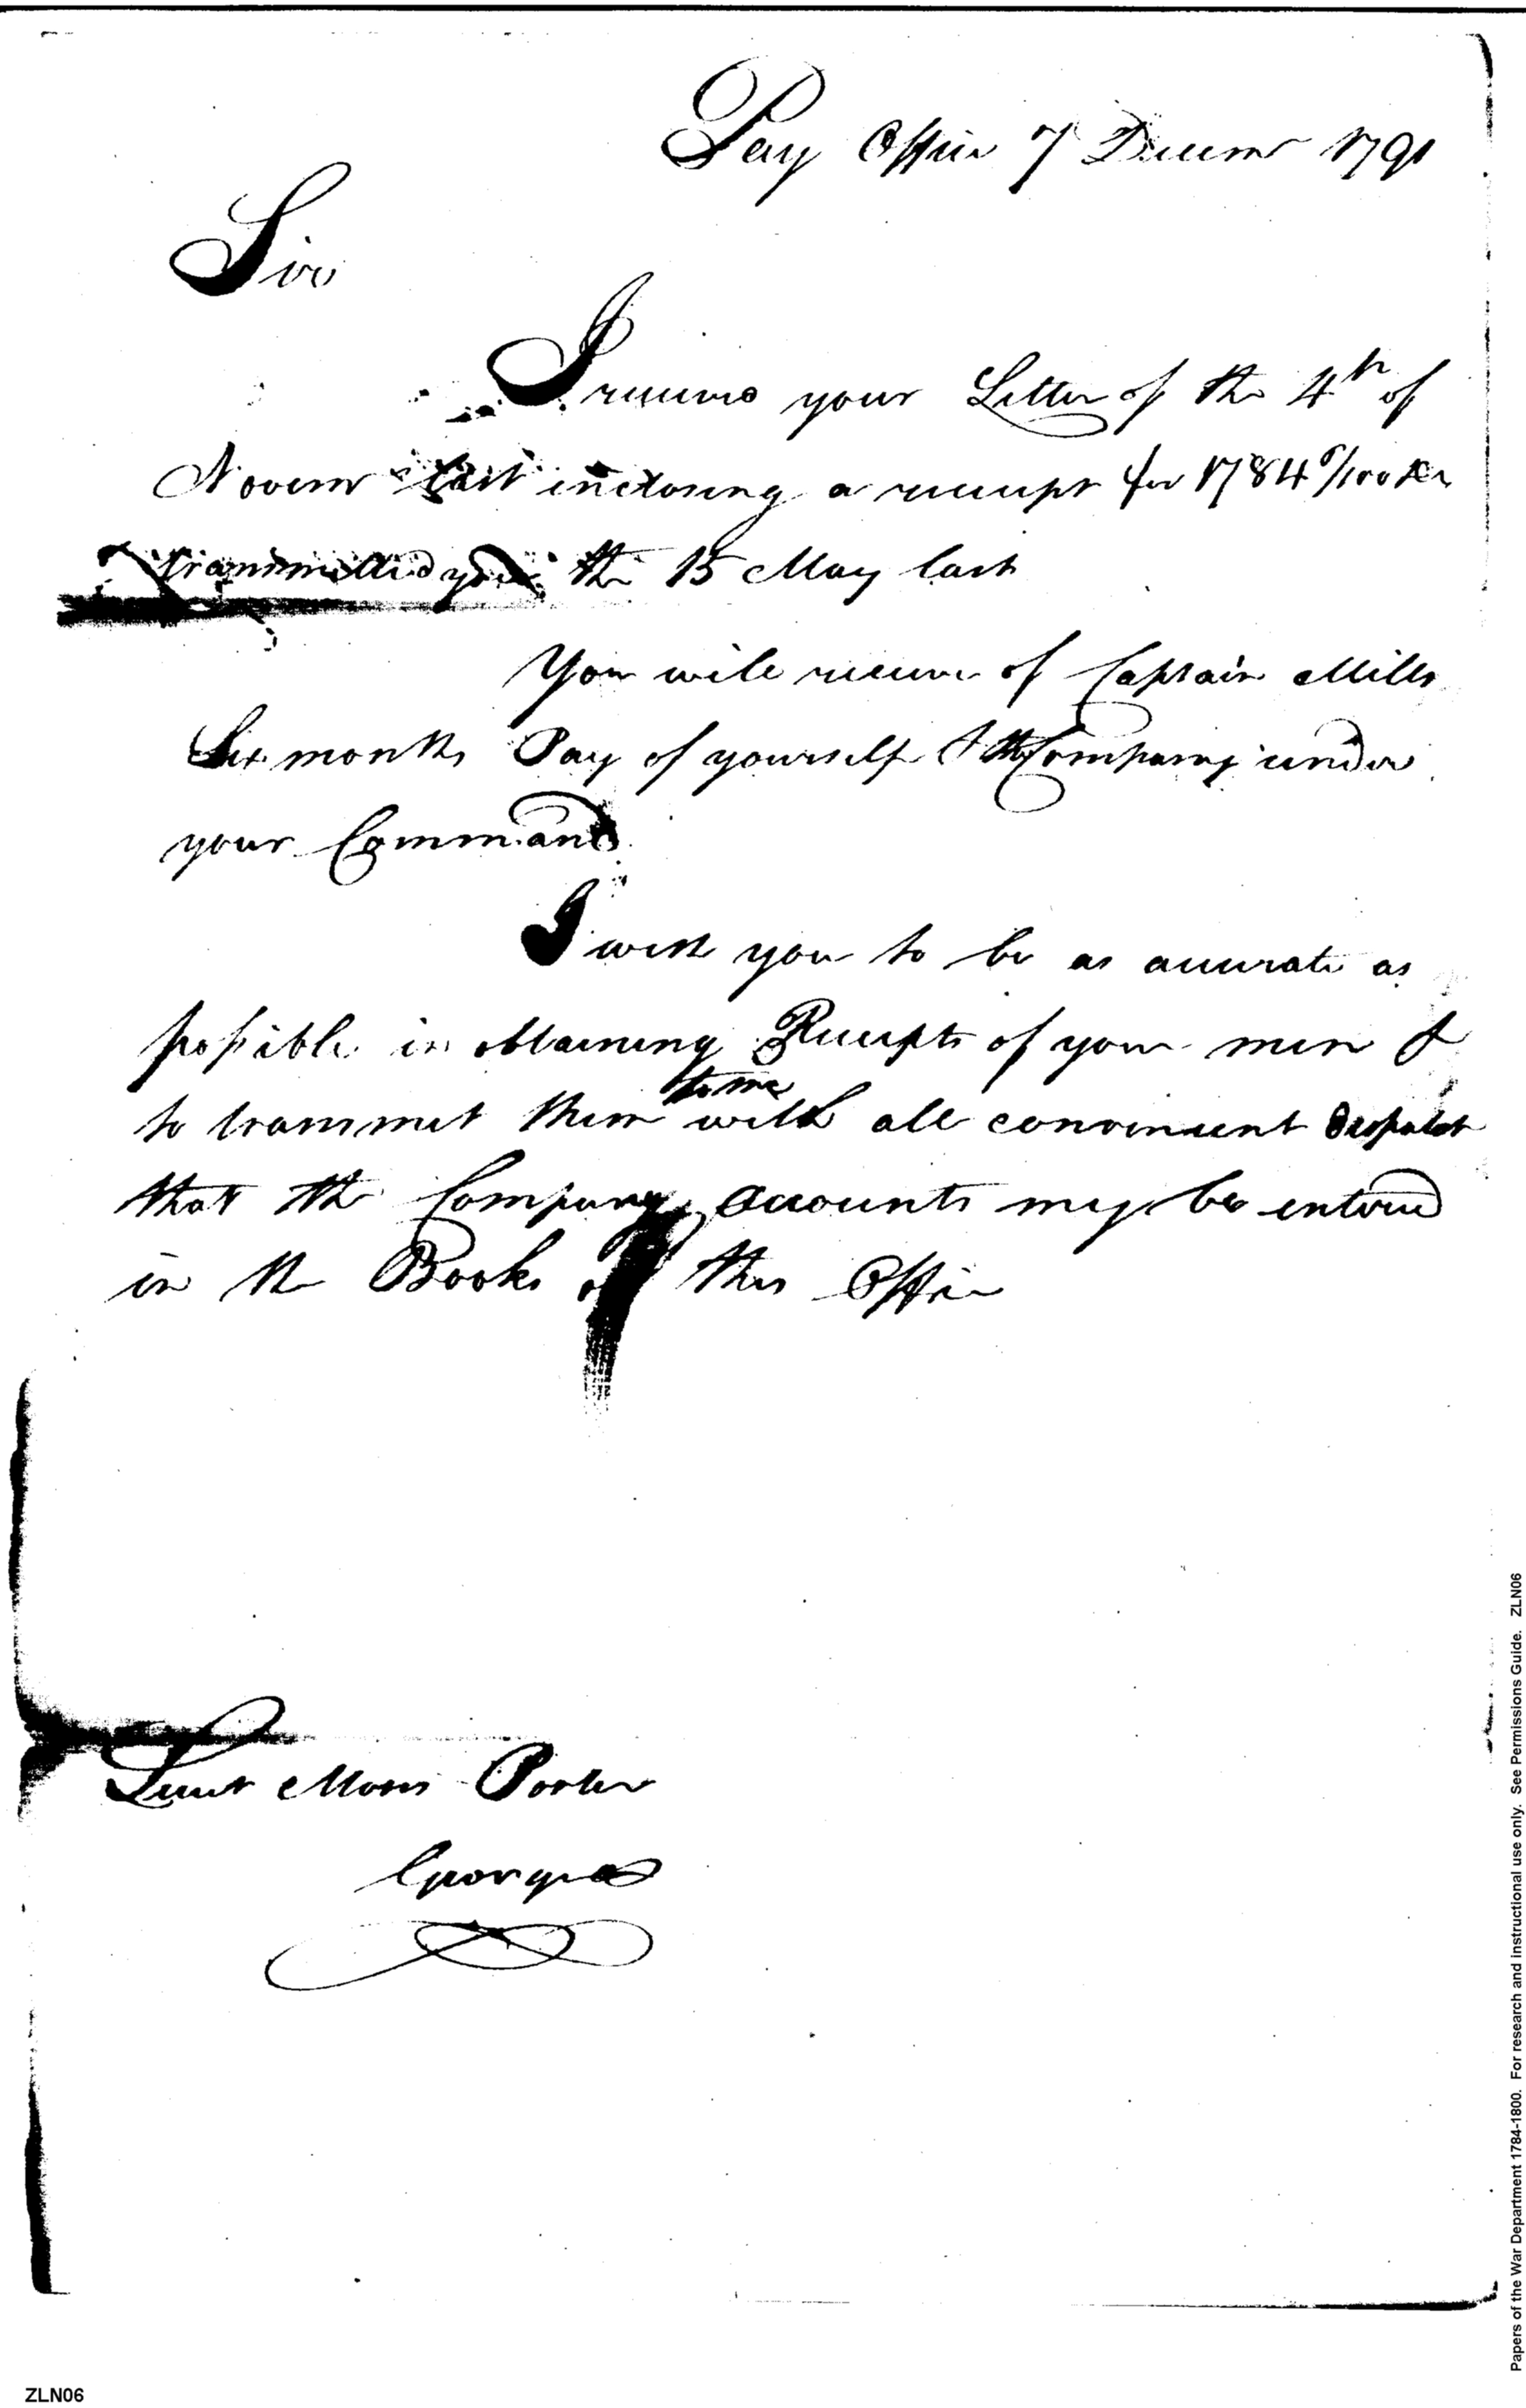 Pay Office 7 Decemr 1791
Sir
I received your Letter of the 4th of
Novemr last inclosing a receipt for 1784 /100 Drs
transmitted you the 15 May last
You will receive of Captain Mills
Six months Pay of yourself & the Company under
your Command
I wish you to be as accurate as
possible in obtaining Receipts of your men &
to me
to transmit them with all convenient dispatch
that the Company accounts may be entered
in the Books of this Office
Lieut Moses Porter
Georgia
Papers of the War Department 1784-1800. For research and instructional use only. See Permissions Guide. ZLN06
ZLN06